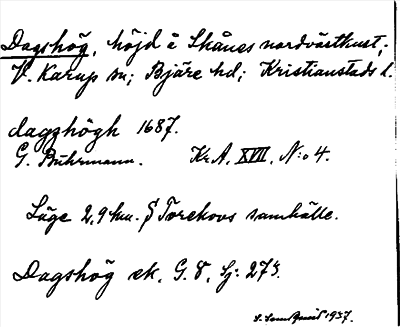 Dagshög, höjd å Skånes nordvästkust;
V. Karup sn; Bjäre hd; Kristianstads l.
dagzhögh 1687.
G. Buhrmann. Kr.A. XVII, N:o 4.
Läge 2,9 km. S Torekovs samhälle.
Dagshög ek. G. 8,
1937.